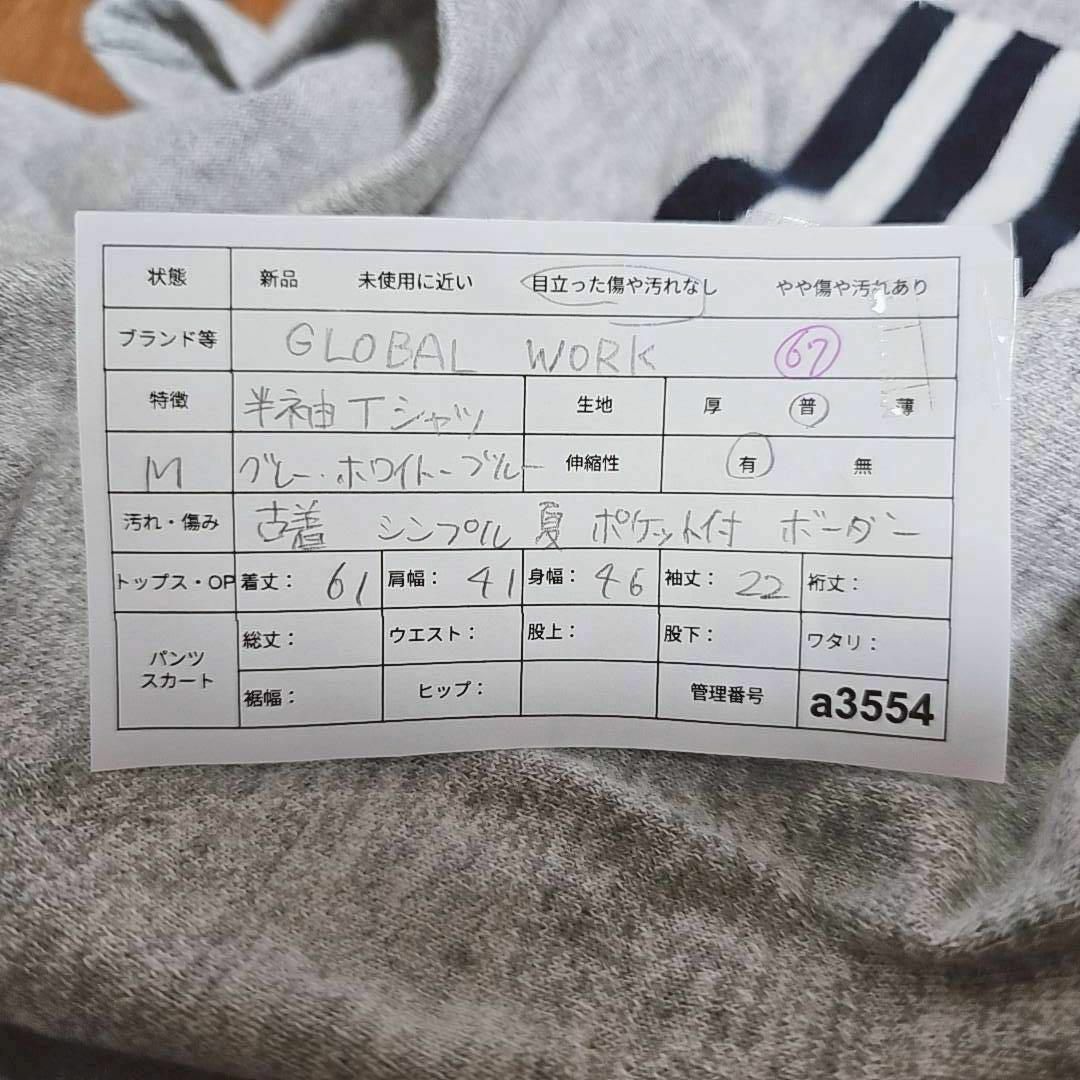 状態 新品 未使用に近い 目立った傷や汚れなし やや傷や汚れあり
ブランド等 GLOBAL WORK 67
特徴 半袖Tシャツ 生地 厚 普 薄
M グレー・ホワイト・ブルー 伸縮性 有 無
汚れ・傷み 古着 シンプル 夏 ポケット付 ボーダー
トップス・OP 着丈: 61 肩幅: 41 身幅: 46 袖丈: 22 裄丈:
パンツ スカート 総丈: ウエスト: 股上: 股下: ワタリ:
裾幅: ヒップ: 管理番号 a3554